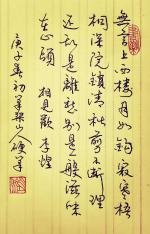 無言上西樓月如鉤寂寞梧
桐深院鎖清秋剪不斷理
還亂是離愁別是一般滋味
在心頭 相見歡 李煜
庚子春初